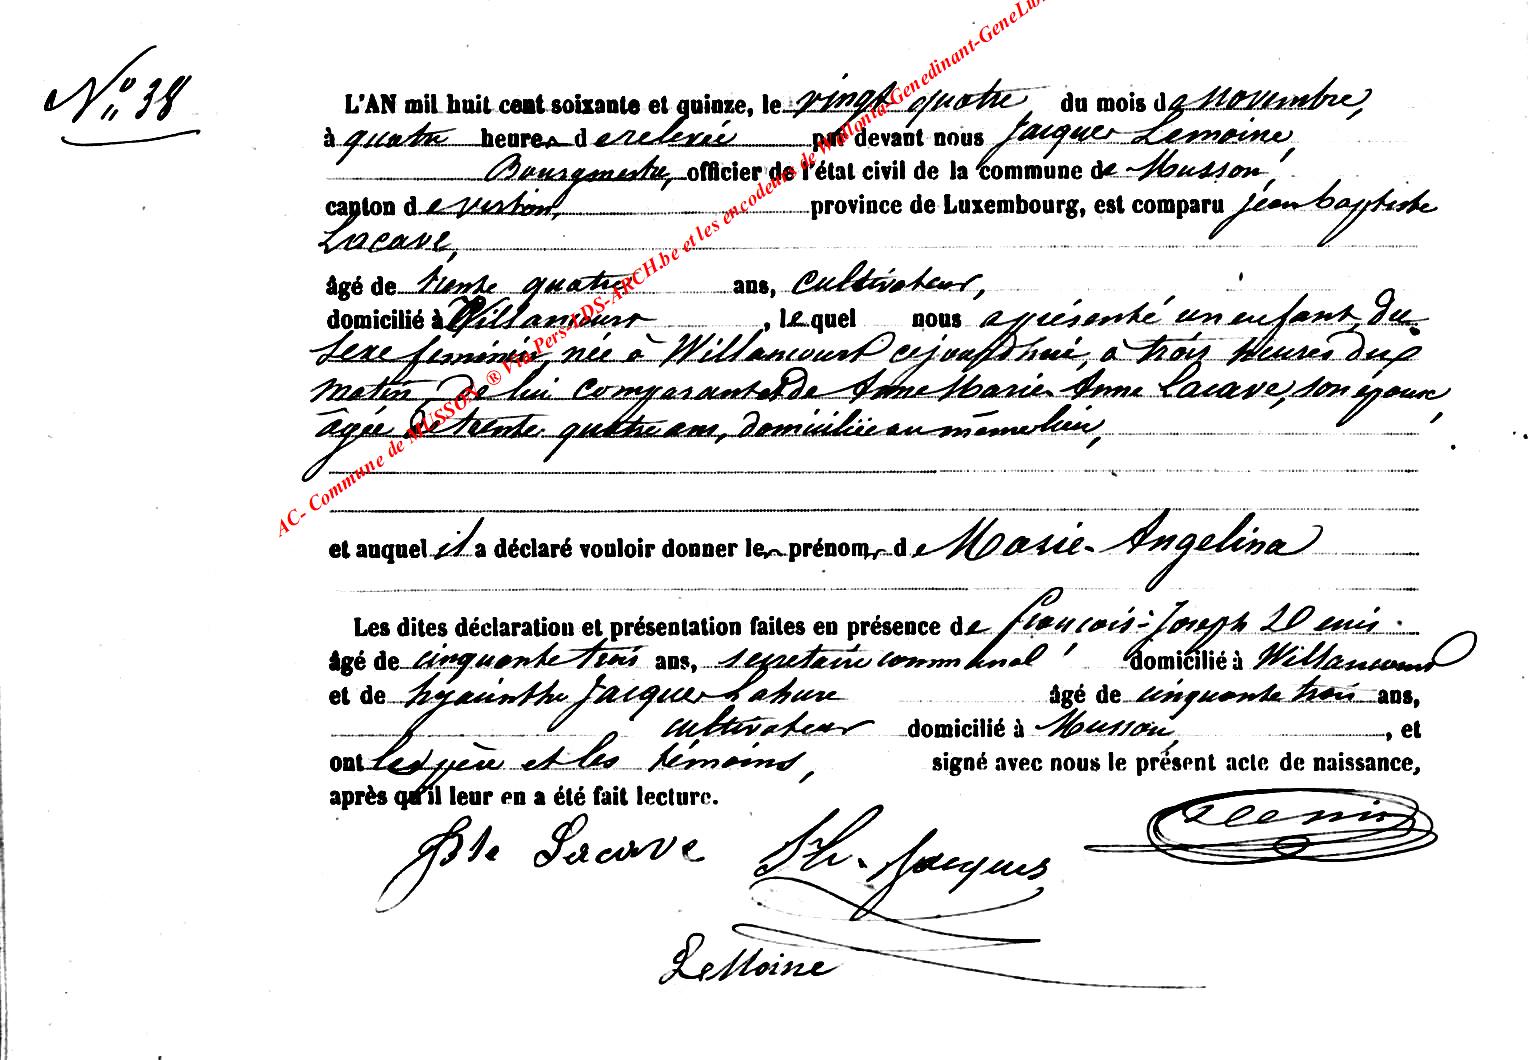 N° 38
L'AN mil huit cent soixante et quinze, le vingt quatre du mois de novembre,
à quatre heures de relevée par devant nous Jacques Lemoine,
Bourgmestre, officier de l'état civil de la commune de Musson,
canton de virton, province de Luxembourg, est comparu jean baptiste
Lacave,
âgé de trente quatre ans, cultivateur,
domicilié à Willancourt, lequel nous a présenté un enfant du
sexe feminin, née à Willancourt cejourd'hui, à trois heures du
matin, de lui comparant et de Anne Marie Anne Lacave, son épouse,
âgée de trente quatre ans, domiciliée au même lieu,
et auquel il a déclaré vouloir donner les prénoms de Marie-Angelina
Les dites déclaration et présentation faites en présence de françois-Joseph
âgé de cinquante trois ans, secretaire communal domicilié à Willancourt
et de hyacinthe Jacques Lahure âgé de cinquante trois ans,
cultivateur domicilié à Musson, et
ont les père et les témoins, signé avec nous le présent acte de naissance,
après qu'il leur en a été fait lecture.
Bte Lacave Jh. Jacques
LeMoine
AC- Commune de MUSSON ® Via Pers-LDS-ARCH.be et les encodeurs de Wallonia-Genedinant-GeneLib